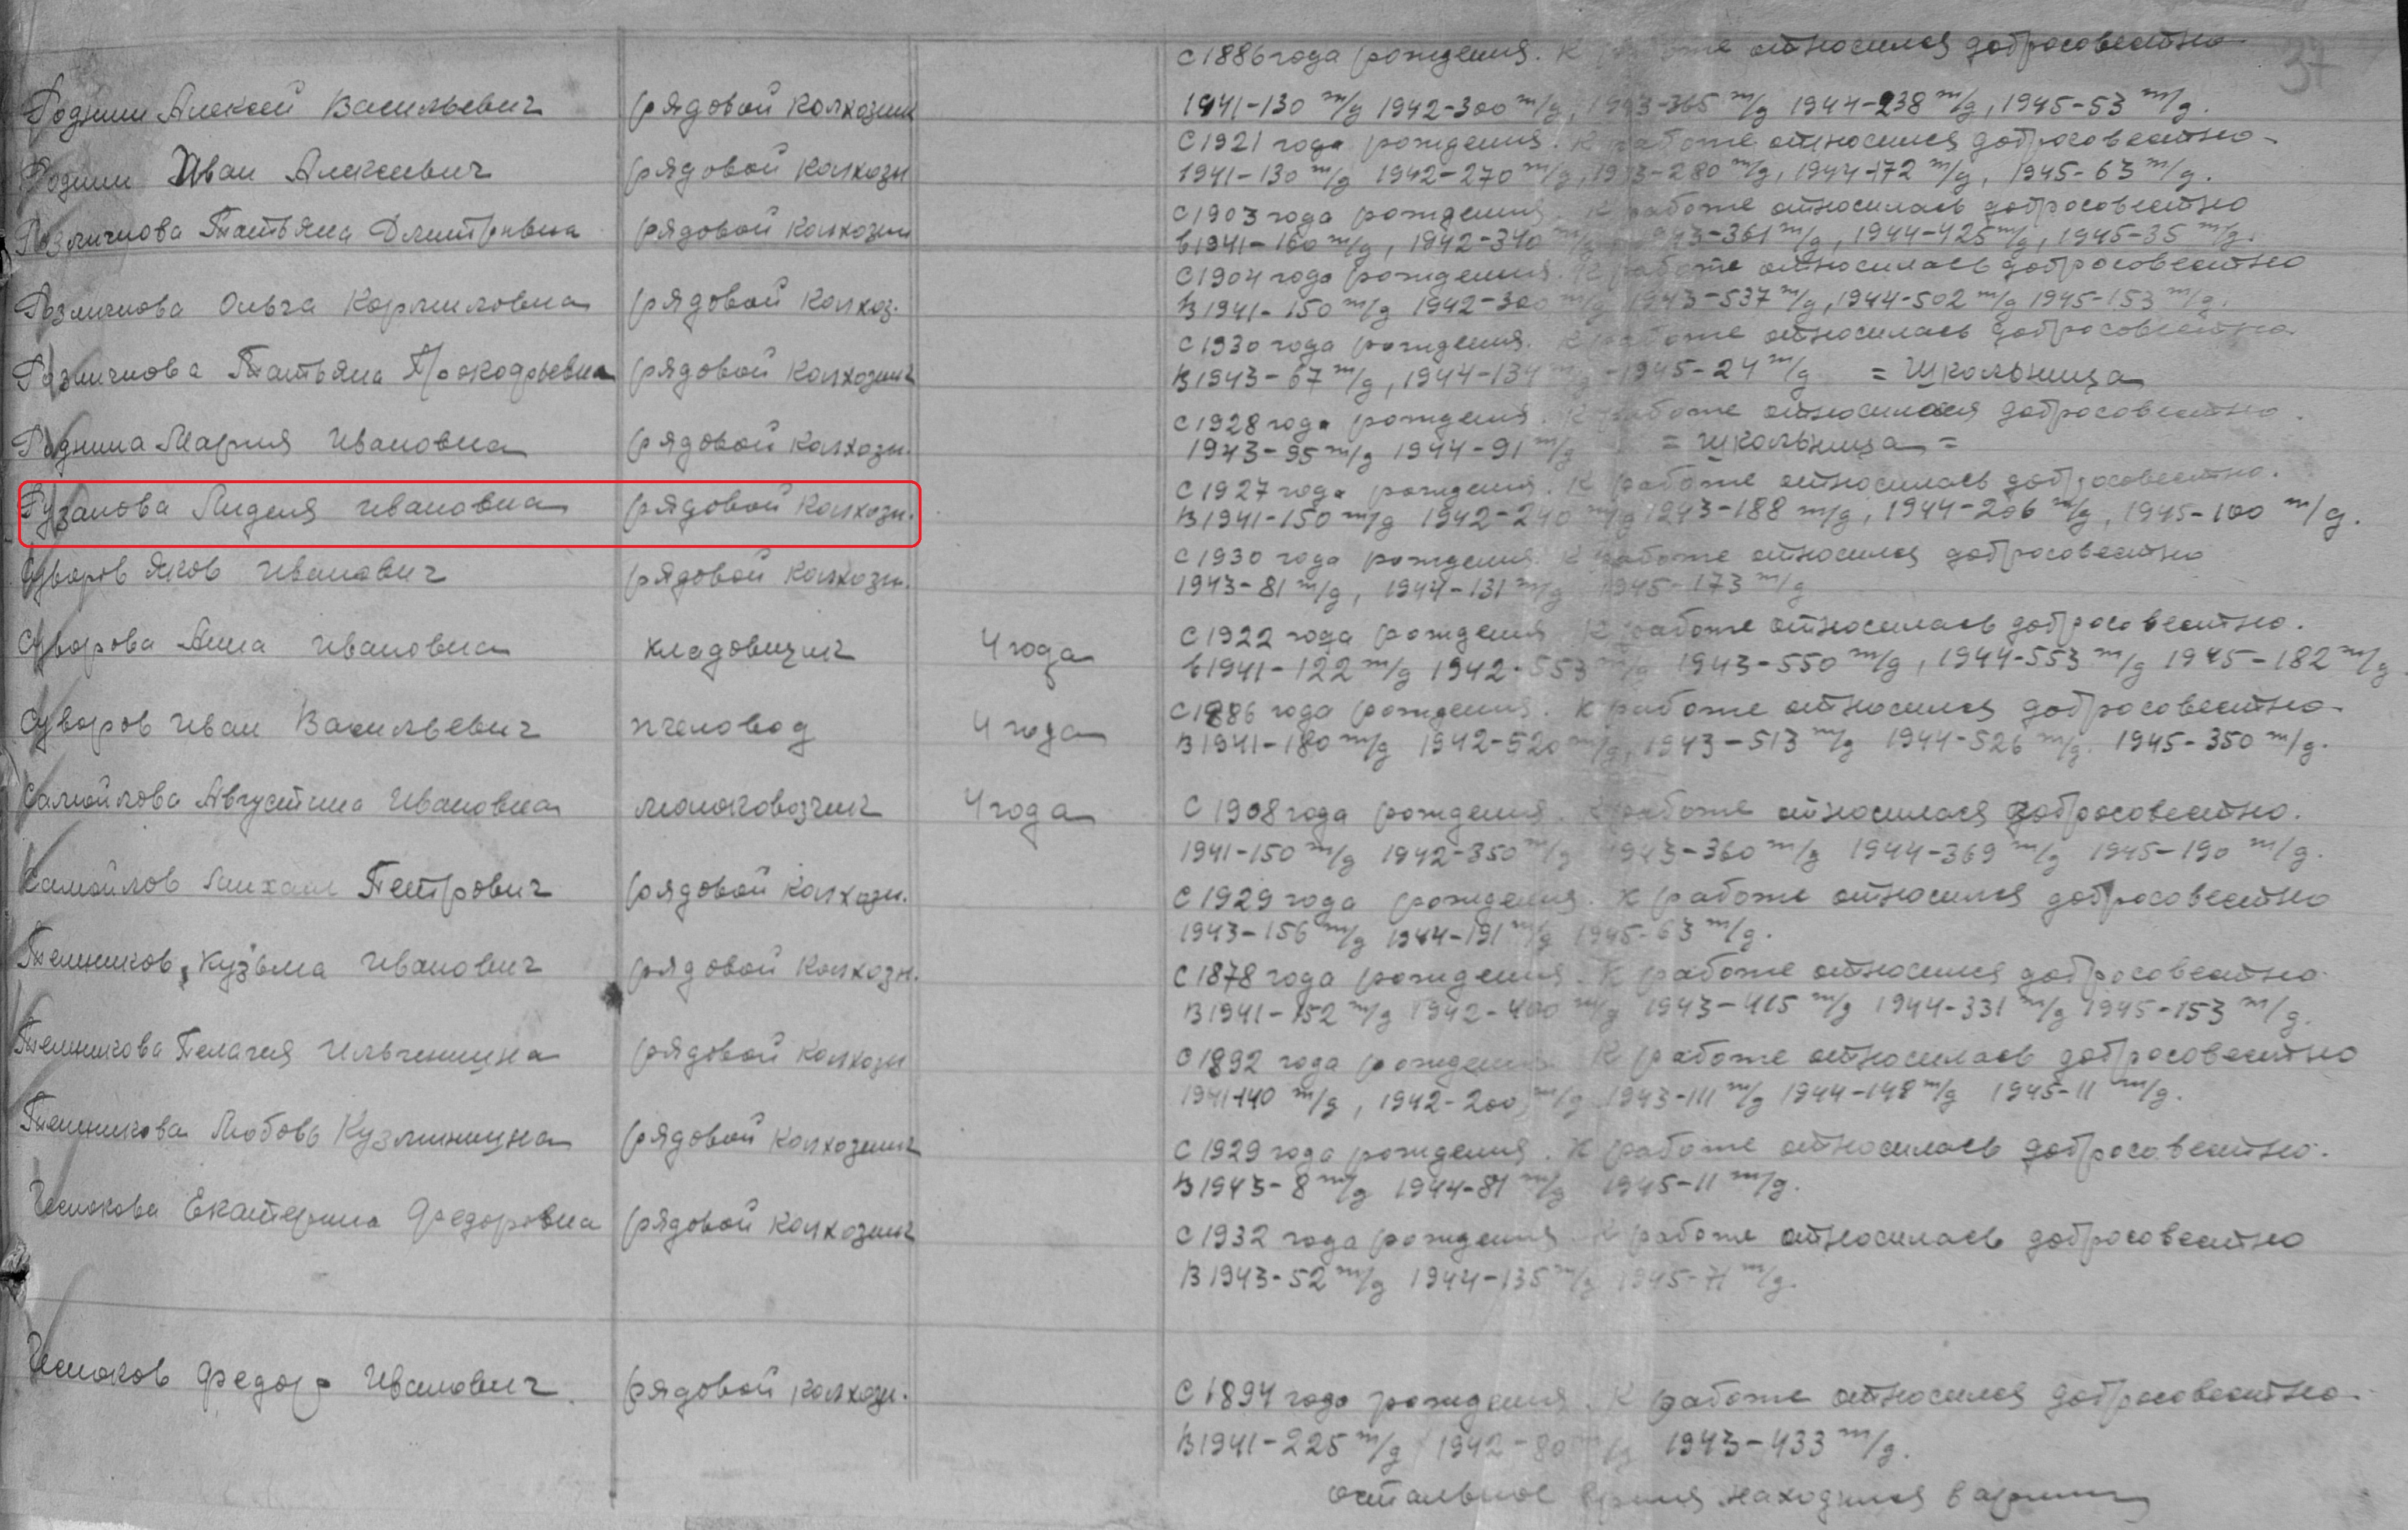 37
с 1886 года рождения. К работе относился добросовестно
Роднин Алексей Васильевич рядовой колхозник 1941-130 т/д 1942-300 т/д, 1943-365 т/д 1944-238 т/д, 1945-53 т/д.
С 1921 года рождения. К работе относился добросовестно
Роднин Иван Алексеевич рядовой колхозн 1941-130 т/д 1942-270 т/д, 1943-280 т/д, 1944-172 т/д, 1945-63 т/д.
С 1903 года рождения. К работе относилась добросовестно
Розминова Татьяна Дмитривна рядовой колхозн в 1941-160 т/д, 1942-340 т/д 1943-361 т/д, 1944-425 т/д, 1945-35 т/д.
С 1904 года рождения. К работе относилась добросовестно
Ольга Кормиловна рядовой колхоз. В 1941-150 т/д 1942-300 т/д 1943-537 т/д, 1944-502 т/д 1945-153 т/д.
С 1930 года рождения. К работе относилась добросовестно.
Татьяна Прокофьевна рядовой колхозник В 1943-67 т/д, 1944-134 т/д -1945-24 т/д = Школьница
С 1928 года рождения. К работе относилася добросовестно.
Роднина Мария Ивановна рядовой колхозн. 1943-95 т/д 1944-91 т/д = школьница =
С 1927 года рождения. К работе относилась добросовестно.
Рузанова Лидия Ивановна рядовой колхозн. В 1941-150 т/д 1942-240 т/д 1943-188 т/д, 1944-206 т/д, 1945-100 т/д.
С 1930 года рождения. К работе относился добросовестно
Суворов Яков Иванович рядовой колхозн. 1943-81 т/д, 1944-131 т/д 1945-173 т/д
С 1922 года рождения К работе относилась добросовестно.
Суворова Анна Ивановна кладовщик 4 года в 1941-122 т/д 1942-553 т/д 1943-550 т/д, 1944-553 т/д 1945-182 т/д
С 1886 года рождения. К работе относился добросовестно
Суворов Иван Васильевич пчеловод 4 года В 1941-180 т/д 1942-520 т/д, 1943-513 т/д 1944-526 т/д. 1945-350 т/д.
Самойлова Августина Ивановна молоковозчик 4 года С 1908 года рождения. К работе относилася добросовестно.
1941-150 т/д 1942-350 т/д 1943-360 т/д 1944-369 т/д 1945-190 т/д.
Самойлов Михаил Петрович рядовой колхозн. С 1929 года рождения. К работе относился добросовестно
1943-156 т/д 1944-191 т/д 1945-63 т/д.
Телников Кузьма Иванович рядовой колхозн. С 1878 года рождения. К работе относился добросовестно
В 1941-152 т/д 1942-400 т/д 1943-415 т/д 1944-331 т/д 1945-153 т/д.
Телникова Пелагея Ильинишна рядовой колхозн С 1892 года рождения К работе относилась добросовестно
1941-140 т/д, 1942-200 т/д 1943-111 т/д 1944-148 т/д 1945-11 т/д.
Телникова Любовь Кузминишна рядовой колхозник С 1929 года рождения. К работе относилась добросовестно.
В 1943-8 т/д 1944-81 т/д 1945-11 т/д.
Чеснокова Екатерина Федоровна рядовой колхозник С 1932 года рождения К работе относилась добросовестно
В 1943-52 т/д 1944-135 т/д 1945-71 т/д.
Чесноков Федор Иванович рядовой колхозн. С 1894 года рождения. К работе относился добросовестно
В 1941-225 т/д 1942-80 т/д 1943-433 т/д.
остальное время находился в армии